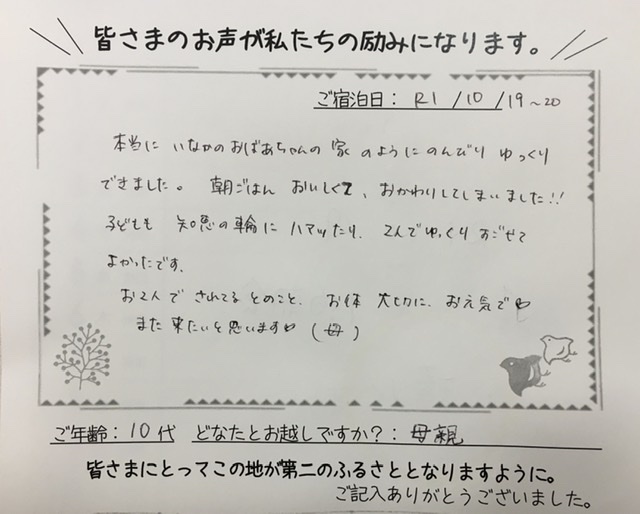 皆さまのお声が私たちの励みになります。
ご宿泊日: R1 / 10 / 19~20
本当に いなかのおばあちゃんの 家 のようにのんびり ゆっくり
できました。 朝ごはん おいしくて、おかわりしてしまいました!!
子どもも 知恵の輪に ハマッたり、2人でゆっくり すごせて
よかったです。
お2人で されてるとのこと、お体 大切に、お元気で♡
また 来たいと思います♡ (母)
ご年齢: 10代 どなたとお越しですか?: 母親
皆さまにとってこの地が第二のふるさととなりますように。
ご記入ありがとうございました。